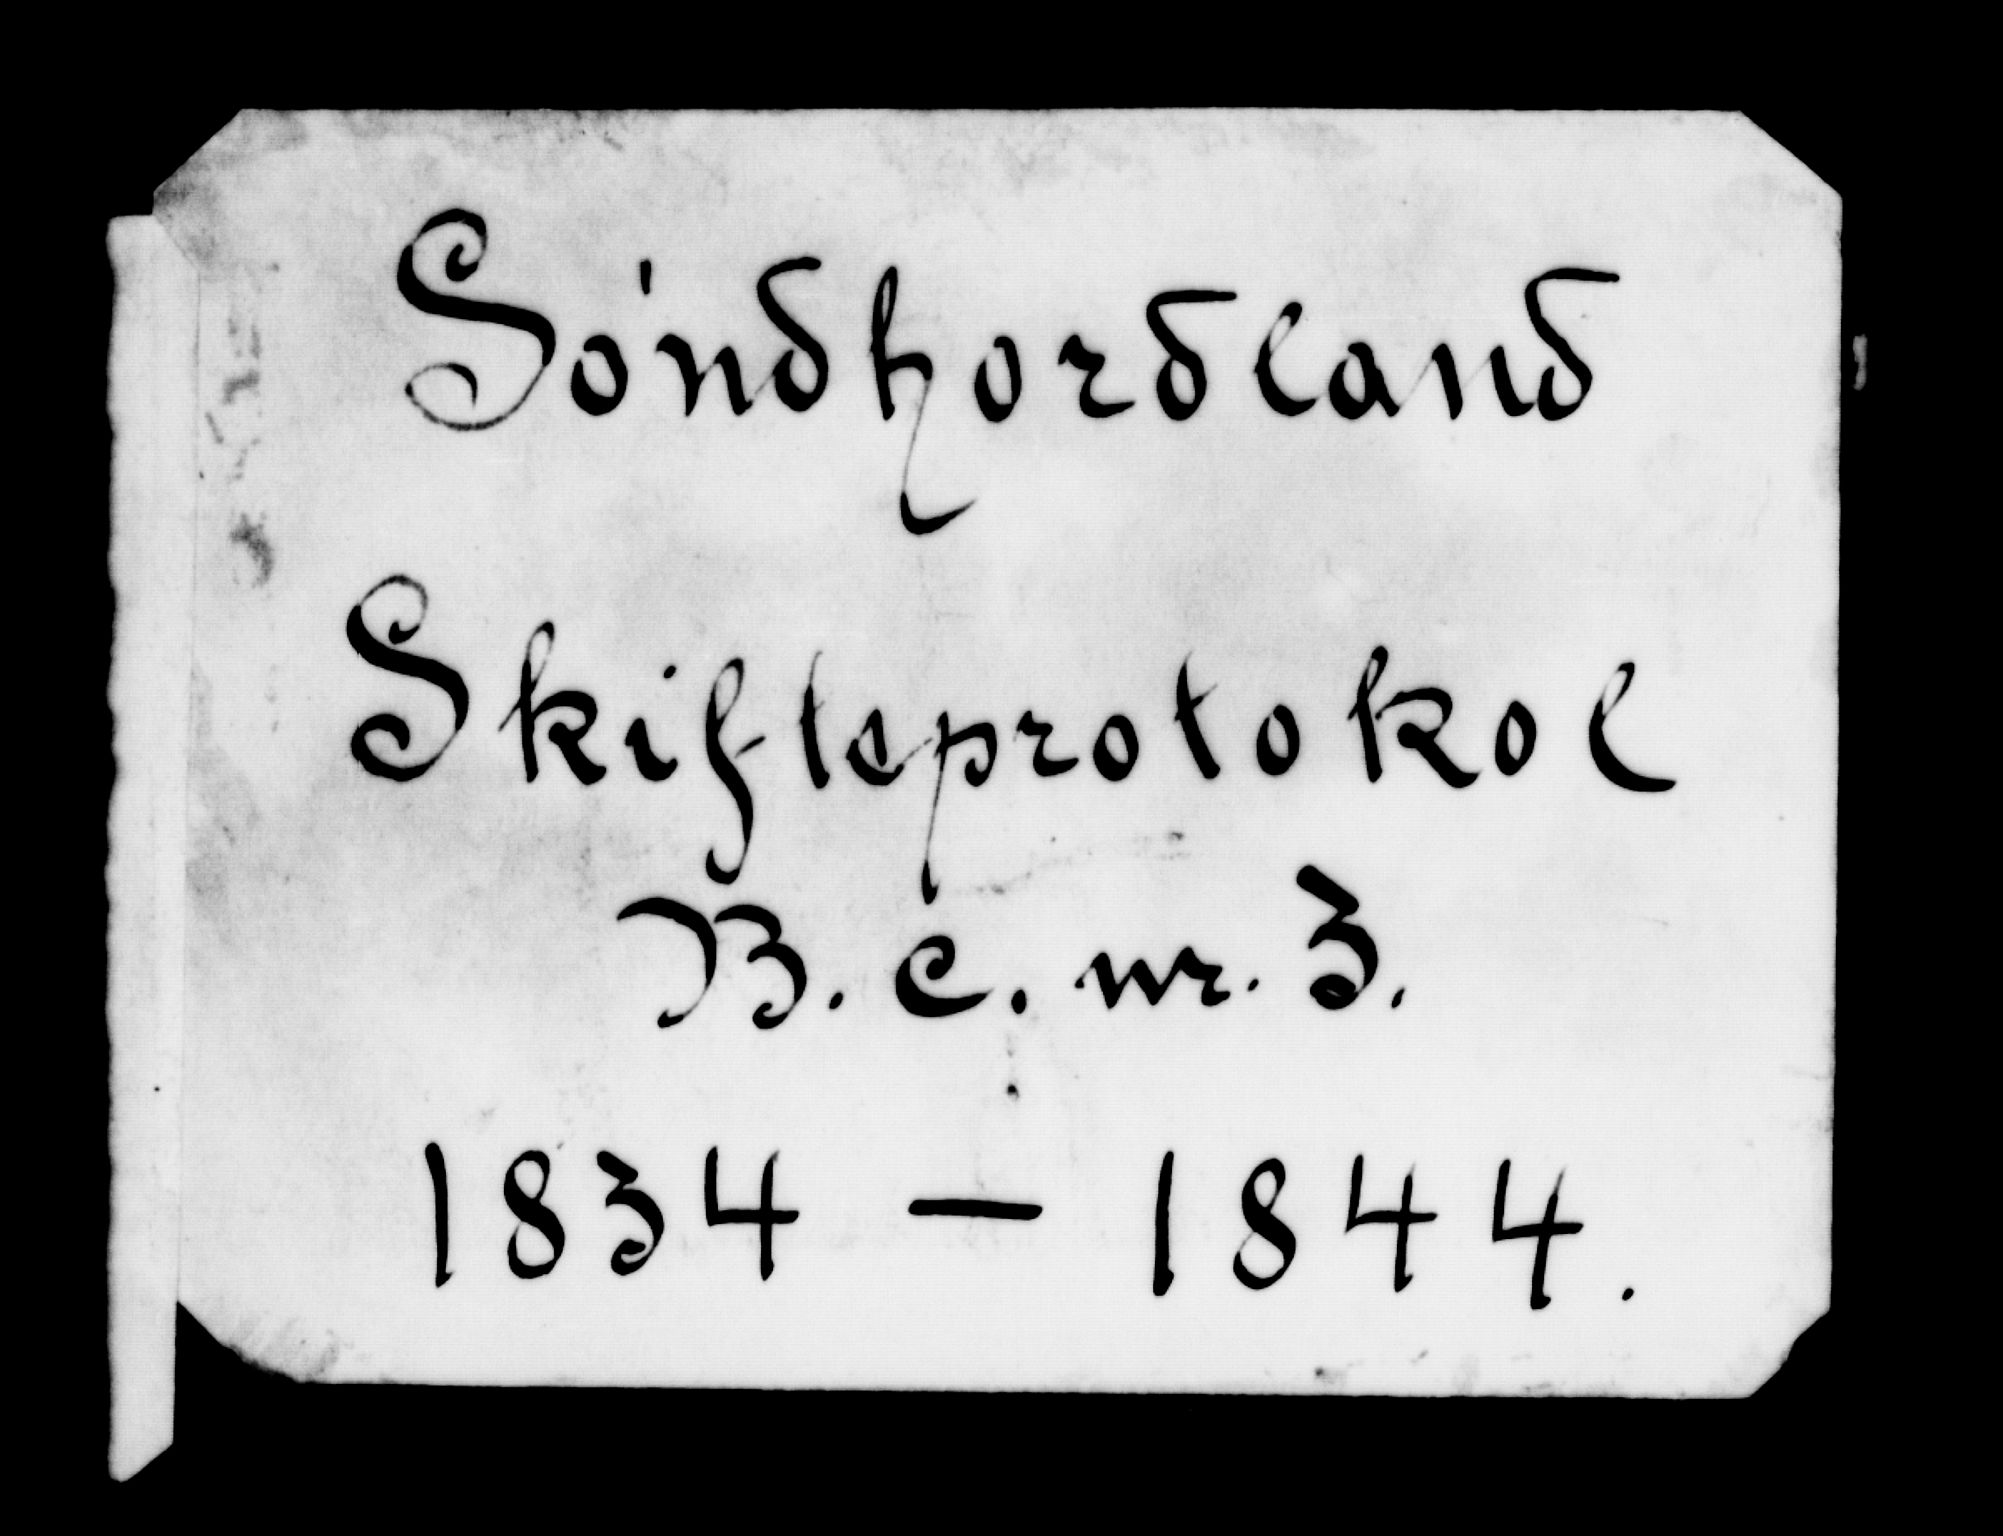 Søndhordland
Skifteprotokol
B. c. nr. 3.
1834 — 1844.